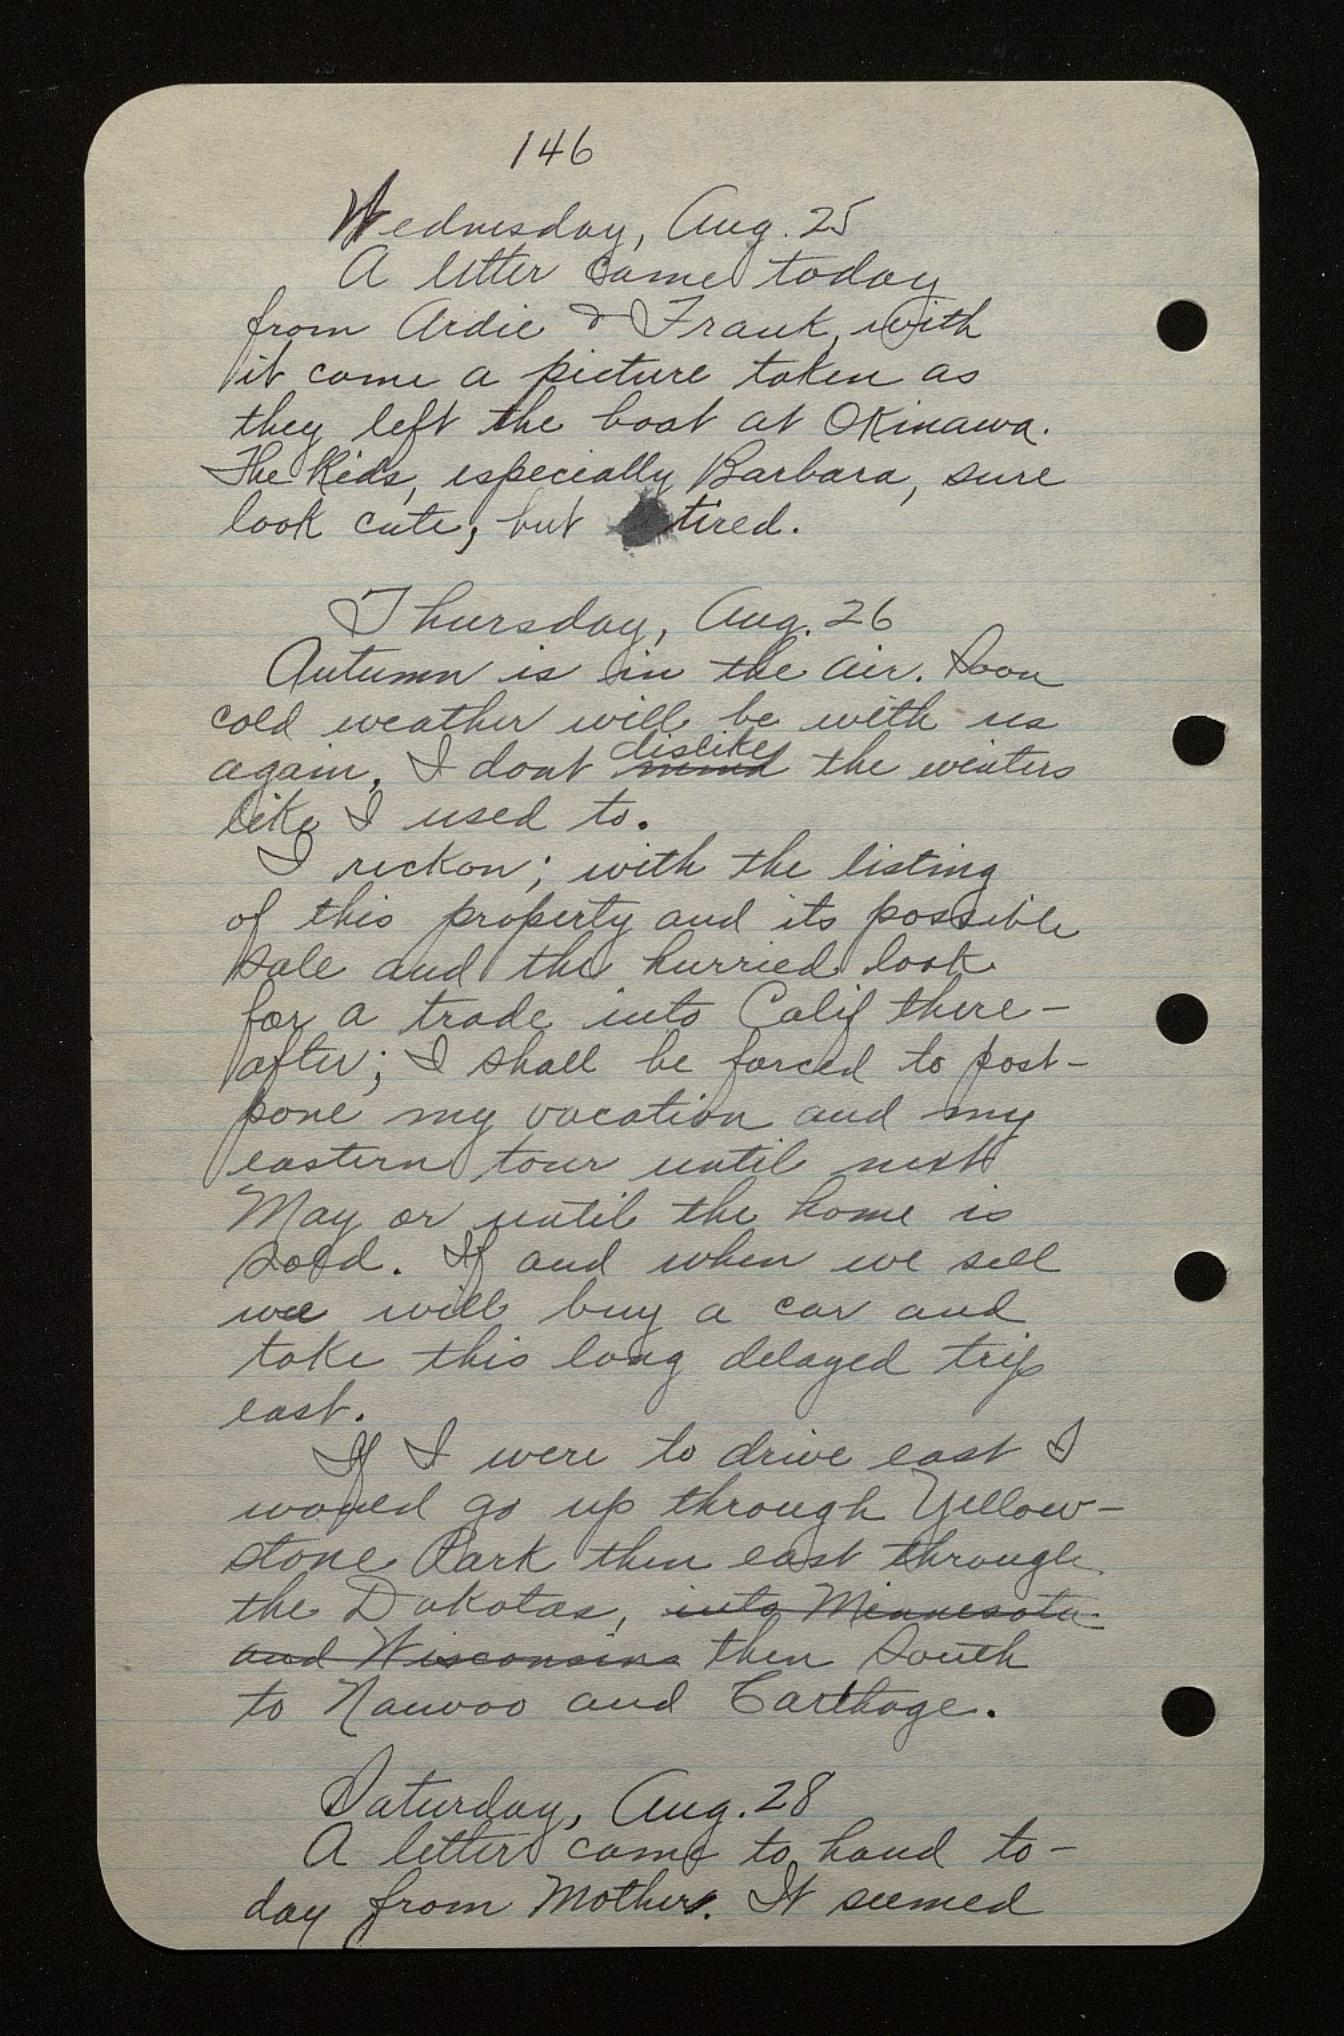 146
Wednesday, Aug. 25
A letter came today
from Ardie & Frank, with
it came a picture taken as
they left the boat at Okinawa.
The Kids, especially Barbara, sure
look cute, but tired.
Thursday, Aug. 26
Autumn is in the air. Soon
cold weather will be with us
again. I dont mind dislike the winters
like I used to.
I reckon; with the listing
of this property and its possible
sale and the hurried look
for a trade into Calif there-
after; I shall be forced to post-
pone my vacation and my
eastern tour until next
May or until the home is
sold. If and when we sell
we will buy a car and
take this long delayed trip
east.
If I were to drive east I
would go up through Yellow-
stone Park then east through
the Dakotas, into Minnesota
and Wisconsins then South
to Nauvoo and Carthage.
Saturday, Aug. 28
A letter came to hand to-
day from Mother. It seemed